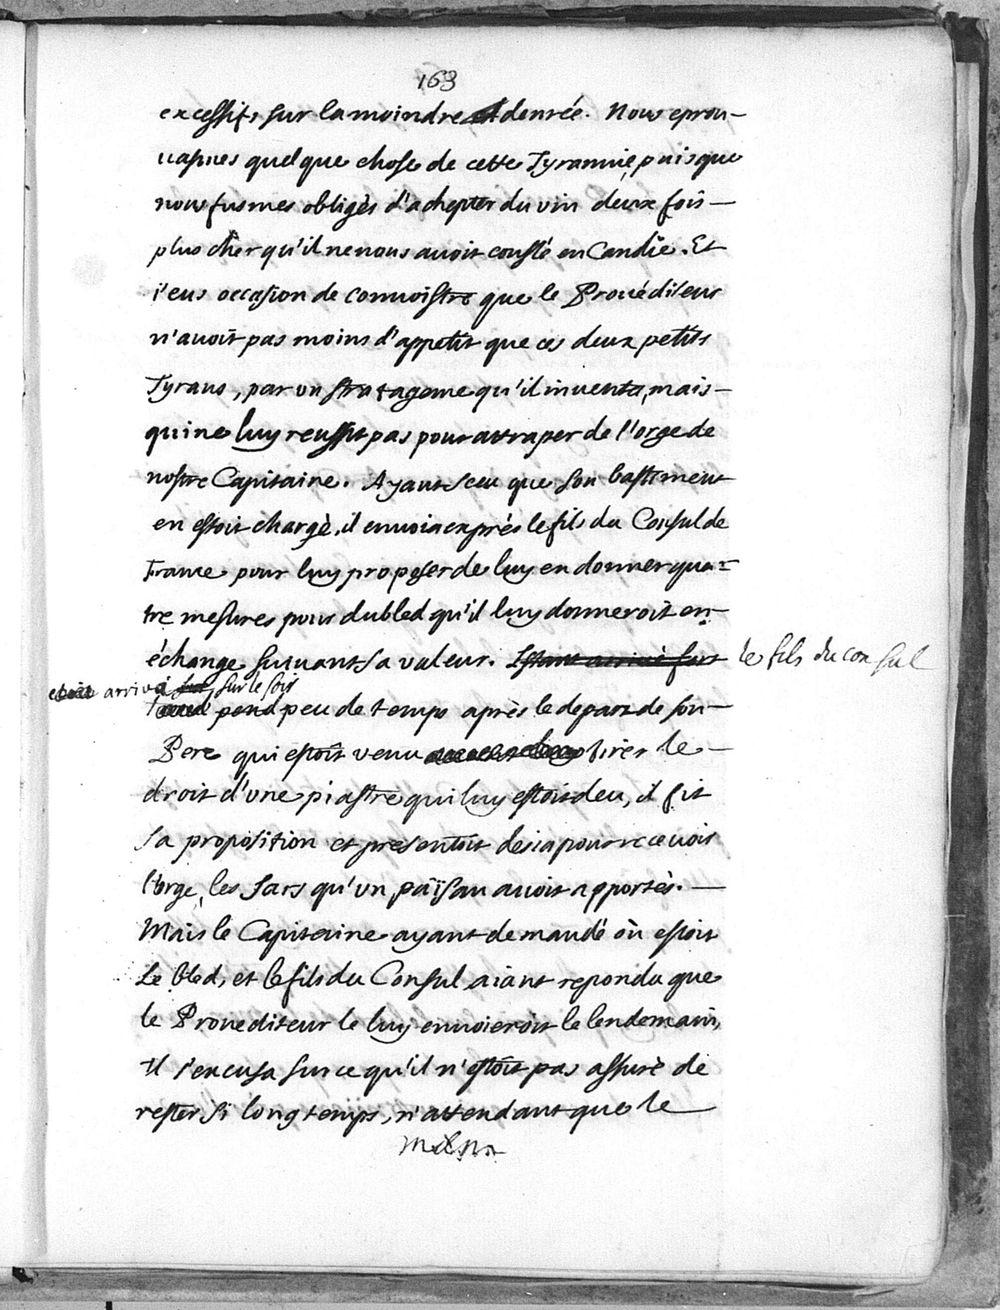 163
excessifs sur la moindre denrée. Nous eprou-
uasmes quelque chose de cette Tyrannie, puisque
nous fusmes obligés d'achepter du vin deux fois
plus cher qu'il ne nous auoit cousté en Candie. Et
i'eus occasion de connoistre que le Prouéditeur
n'auoit pas moins d'appetit que ces deux petits
Tyrans, par un stratageme qu'il inuenta, mais
qui ne luy reussit pas pour attraper de l'orge de
nostre Capitaine. Ayant sceu que son bastiment
en estoit chargé, il enuoia exprés le fils du Consul de
France pour luy proposer de luy en donner qua=
tre mesures pour du bled qu'il luy donneroit en
échange suiuant sa valeur. Estant arriué sur le fils du consul
estoit arrivé sur le soir
peu de temps après le depart de son
Pere qui estoit venu tirer le
droit d'une piastre qui luy estoit deu, il fit
sa proposition et presentoit desia pour receuoir
l'orge, les sacs qu'un païsan auoit apportés.
Mais le Capitaine ayant demandé où estoit
Le bled, et le fils du Consul aiant repondu que
le Prouediteur le luy enuoieroit le lendemain,
Il s'excusa sur ce qu'il n'estoit pas assuré de
rester si long temps, n'attendant que le